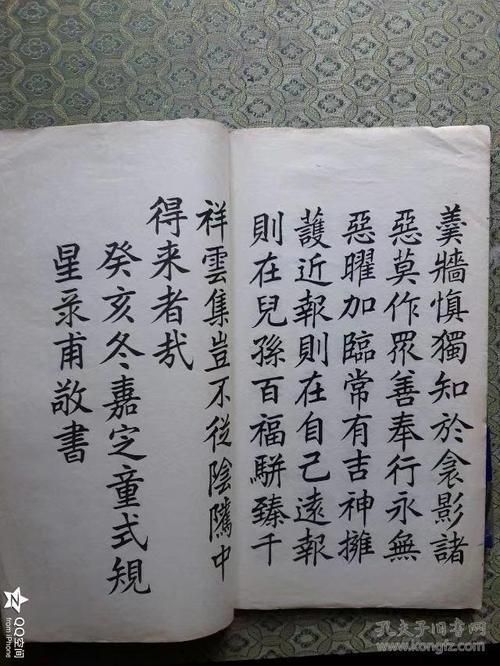 羹牆慎獨知於衾影諸
惡莫作眾善奉行永無
惡曜加臨常有吉神擁
護近報則在自己遠報
則在兒孫百福駢臻千
祥雲集豈不從陰隲中
得来者哉
癸亥冬嘉定童式規
星录甫敬書
QQ空间
from iPhone
孔夫子旧书网
www.kongfz.com